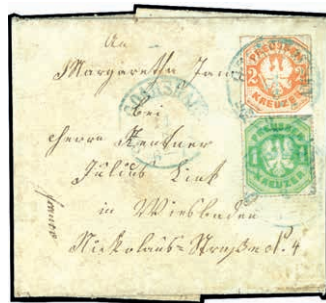 An
Margaretha
bei
Herrn Rentner
Julius Link
in Wiesbaden
Nickolaus-Straße N. 4
franco
PREUSSEN
2
KREUZER
PREUSSEN
1
KREUZER